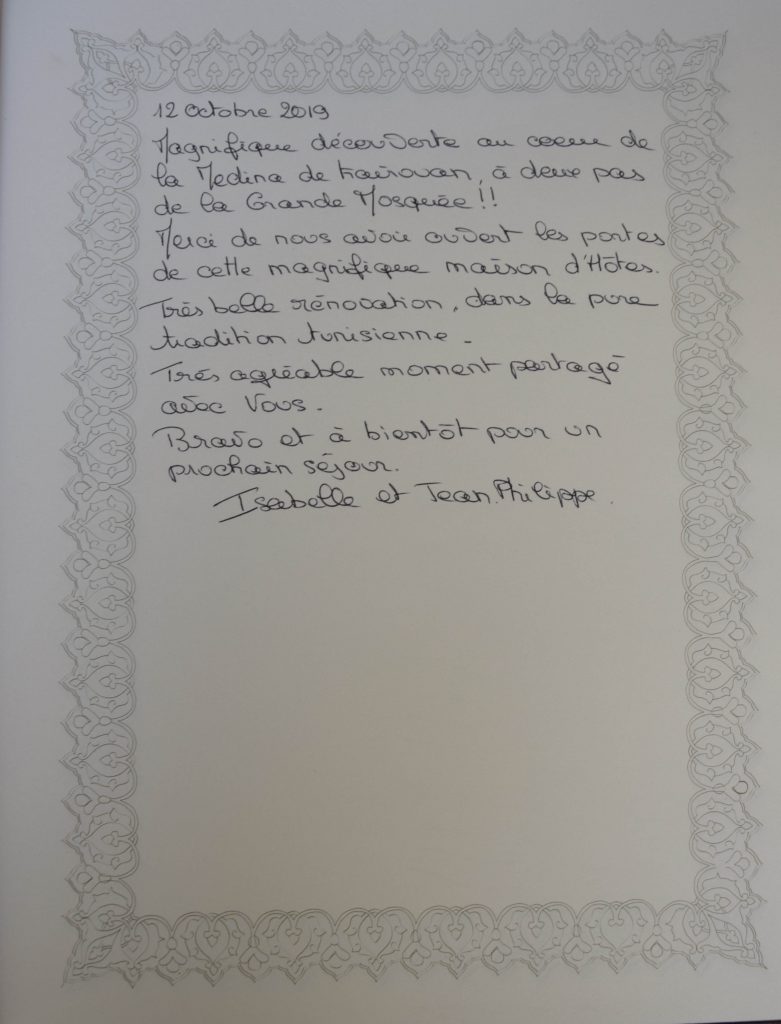 12 Octobre 2019
Magnifique découverte au coeur de
la Medina de Kairouan, à deux pas
de la Grande Mosquée !!
Merci de nous avoir ouvert les portes
de cette magnifique maison d'Hôtes.
Très belle rénovation, dans la pure
tradition tunisienne.
Très agréable moment partagé
avec Vous.
Bravo et à bientôt pour un
prochain séjour.
Isabelle et Jean.Philippe.